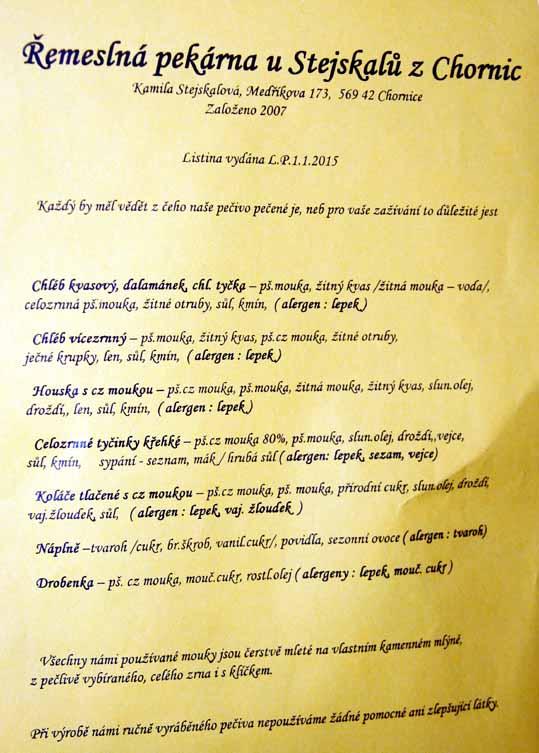 Řemeslná pekárna u Stejskalů z Chornic
Kamila Stejskalová, Medříkova 173, 569 42 Chornice
Založeno 2007
Listina vydána L.P.1.1.2015
Každý by měl vědět z čeho naše pečivo pečené je, neb pro vaše zažívání to důležité jest
Chléb kvasový, dalamánek, chl. tyčka – pš.mouka, žitný kvas /žitná mouka – voda/,
celozrnná pš.mouka, žitné otruby, sůl, kmín, ( alergen : lepek )
Chléb vícezrnný – pš.mouka, žitný kvas, pš.cz mouka, žitné otruby,
ječné krupky, len, sůl, kmín, ( alergen : lepek )
Houska s cz moukou – pš.cz mouka, pš.mouka, žitná mouka, žitný kvas, slun.olej,
droždí,, len, sůl, kmín, ( alergen : lepek )
Celozrnné tyčinky křehké – pš.cz mouka 80%, pš.mouka, slun.olej, droždí,,vejce,
sůl, kmín, sypání - seznam, mák / hrubá sůl ( alergen: lepek, sezam, vejce)
Koláče tlačené s cz moukou – pš.cz mouka, pš. mouka, přírodní cukr, slun.olej, droždí,
vaj.žloudek, sůl, ( alergen : lepek, vaj. žloudek )
Náplně –tvaroh /cukr, br.škrob, vanil.cukr/, povidla, sezonní ovoce ( alergen : tvaroh)
Drobenka – pš. cz mouka, mouč.cukr, rostl.olej ( alergeny : lepek, mouč. cukr )
Všechny námi používané mouky jsou čerstvě mleté na vlastním kamenném mlýně,
z pečlivě vybíraného, celého zrna i s klíčkem.
Při výrobě námi ručně vyráběného pečiva nepoužíváme žádné pomocné ani zlepšující látky.